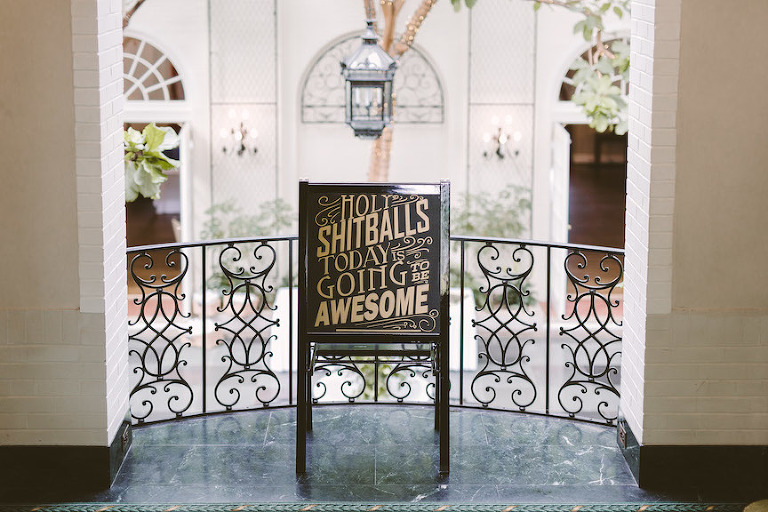 HOLY
SHITBALLS
TODAY IS
GOING TO BE
AWESOME